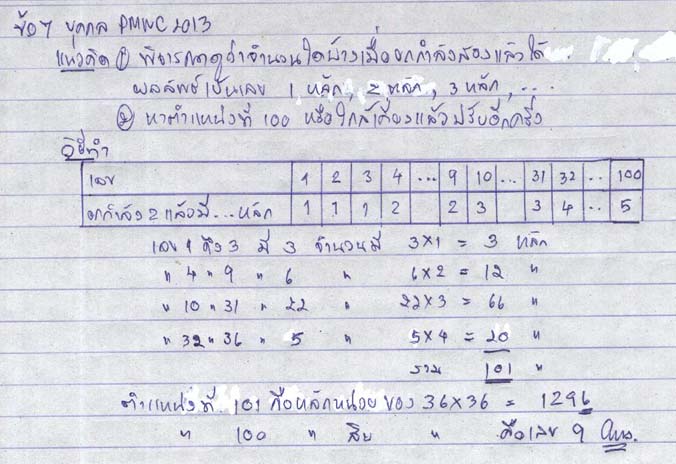 ข้อ 7 บุคคล PMWC 2013
แนวคิด ① พิจารณาดูว่าจำนวนใดบ้างเมื่อยกกำลังสองแล้วได้
ผลลัพธ์เป็นเลข 1 หลัก, 2 หลัก, 3 หลัก, ...
② หาตำแหน่งที่ 100 หรือใกล้เคียงแล้วปรับอีกครั้ง
วิธีทำ
เลข 1 2 3 4 ... 9 10 ... 31 32 .. 100
ยกกำลัง 2 แล้วมี...หลัก 1 1 1 2 2 3 3 4 .. 5
เลข 1 ถึง 3 มี 3 จำนวนมี 3×1 = 3 หลัก
" 4 " 9 " 6 " 6×2 = 12 "
" 10 " 31 " 22 " 22×3 = 66 "
" 32 " 36 " 5 " 5×4 = 20 "
รวม 101 "
ตำแหน่งที่ 101 คือหลักหน่วย ของ 36×36 = 1296
" 100 " สิบ " คือเลข 9 Ans.